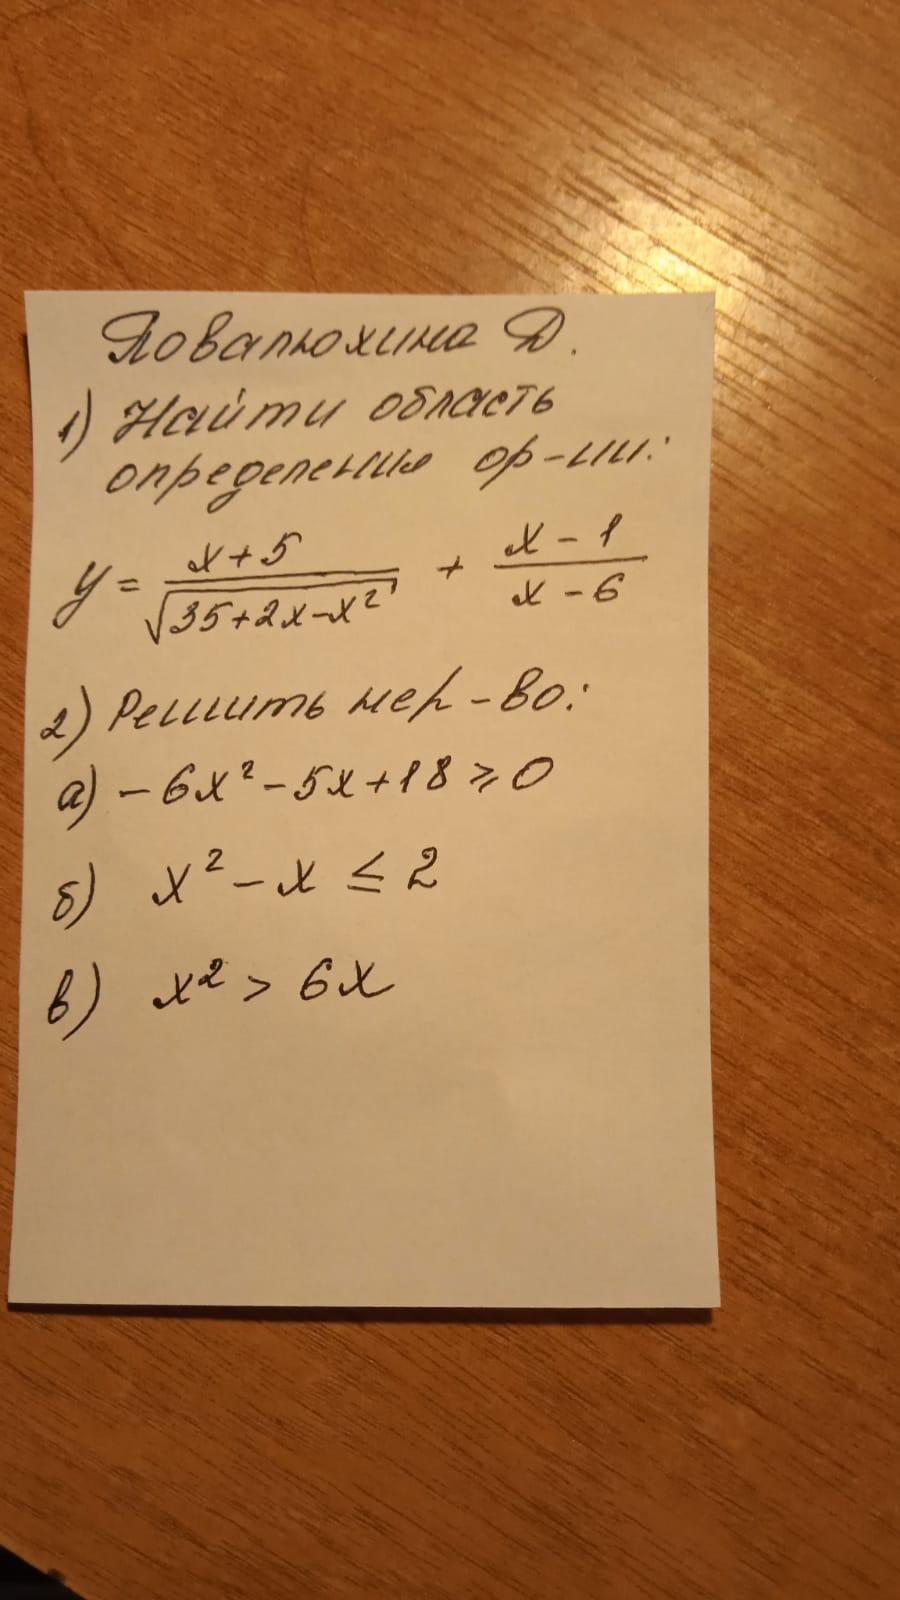 Яовалюхина Д.
1) Найти область
определения ф-ии:
y = (x+5)/√(35+2x-x²) + (x-1)/(x-6)
2) Решить нер-во:
а) -6x²-5x+18 ≥ 0
б) x² - x ≤ 2
в) x² > 6x